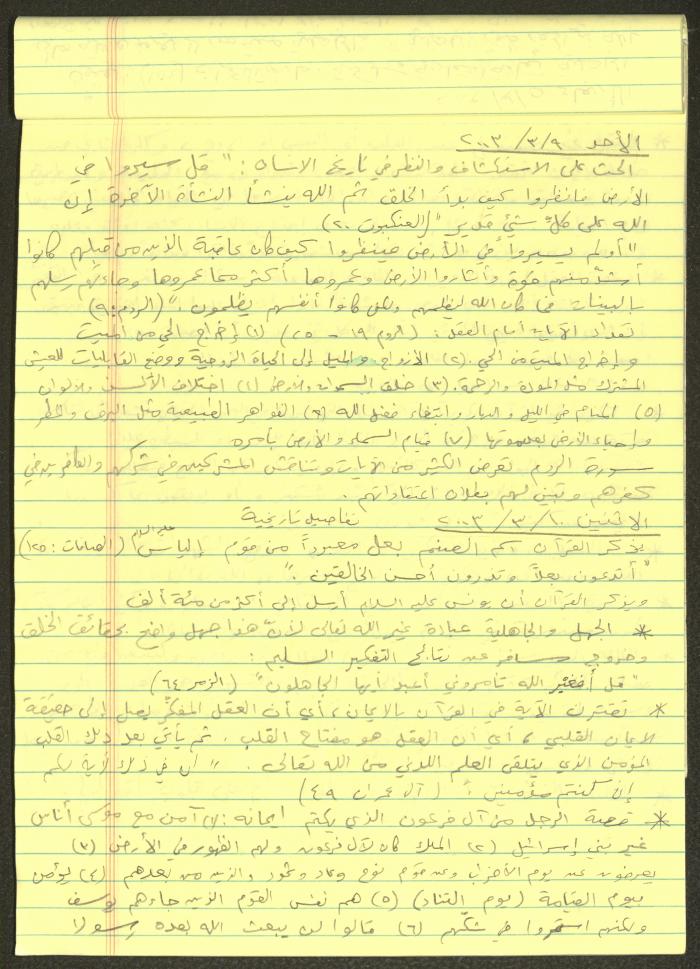 الأحد ٢٠٠٣/٣/٩
الحث على الاستكشاف والنظر في تاريخ الانسان : " قل سيروا في
الأرض فانظروا كيف بدأ الخلق ثم الله ينشئ النشأة الآخرة إن
الله على كلّ شيئ قدير " (العنكبوت ٢٠)
" أو لم يسيروا في الأرض فينظروا كيف كان عاقبة الذين من قبلهم كانوا
أشدّ منهم قوة وأثاروا الأرض وعمروها أكثر مما عمروها وجاءتهم رسلهم
بالبينات فما كان الله ليظلمهم ولكن كانوا أنفسهم يظلمون . " (الروم : ٩)
تعداد الآيات أمام العقل : (الروم ١٩ - ٢٥) (١) إخراج الحي من الميت
وإخراج الميت من الحي . (٢) الأزواج والميل إلى الحياة الزوجية ووضع القابليات للعيش
المشترك مثل المودة والرحمة . (٣) خلق السموات والأرض (٤) اختلاف الألسن والالوان
(٥) المنام في الليل والنهار وابتغاء فضل الله (٦) الظواهر الطبيعية مثل البرق والمطر
وإحياء الأرض بعد موتها (٧) قيام السماء والأرض بأمره
سورة الروم تعرض الكثير من الآيات وتناقش المشركين في شركهم والكافرين في
كفرهم وتبين لهم بطلان اعتقاداتهم .
الاثنين ٢٠٠٣/٣/١٠ تفاصيل تاريخية
يذكر القرآن اسم الصنم بعل معبوداً من قوم إلياس عليه السلام (الصافات : ١٢٥)
" أتدعون بعلاً وتذرون أحسن الخالقين . "
ويذكر القرآن أن يونس عليه السلام أرسل إلى أكثر من مئة ألف
* الجهل والجاهلية عبادة غير الله تعالى لأنّ هذا جهل واضح بحقائق الخلق
وخروج سافر عن نتائج التفكير السليم :
" قل أفغير الله تأمروني أعبد أيها الجاهلون " (الزمر ٦٤)
* تقترن الآية في القرآن بالايمان ، أي أن العقل المفكّر يصل إلى حقيقة
الايمان القلبي ، أي أن العقل هو مفتاح القلب . ثم يأتي بعد ذلك القلب
المؤمن الذي يتلقى العلم اللدني من الله تعالى . " إن في ذلك لآية لكم
إن كنتم مؤمنين . " (آل عمران ٤٩)
* قصة الرجل من آل فرعون الذي يكتم ايمانه : (١) آمن مع موسى أناس
غير بني إسرائيل (٢) الملك كان لآل فرعون ولهم الظهور في الأرض (٣)
يعرفون عن يوم الأحزاب وعن قوم نوح وعاد وثمود والذين من بعدهم (٤) يؤمن
بيوم القيامة (يوم التناد) (٥) هم نفس القوم الذين جاءهم يوسف
ولكنهم استمروا في شكّهم (٦) قالوا لن يبعث الله بعده رسولا